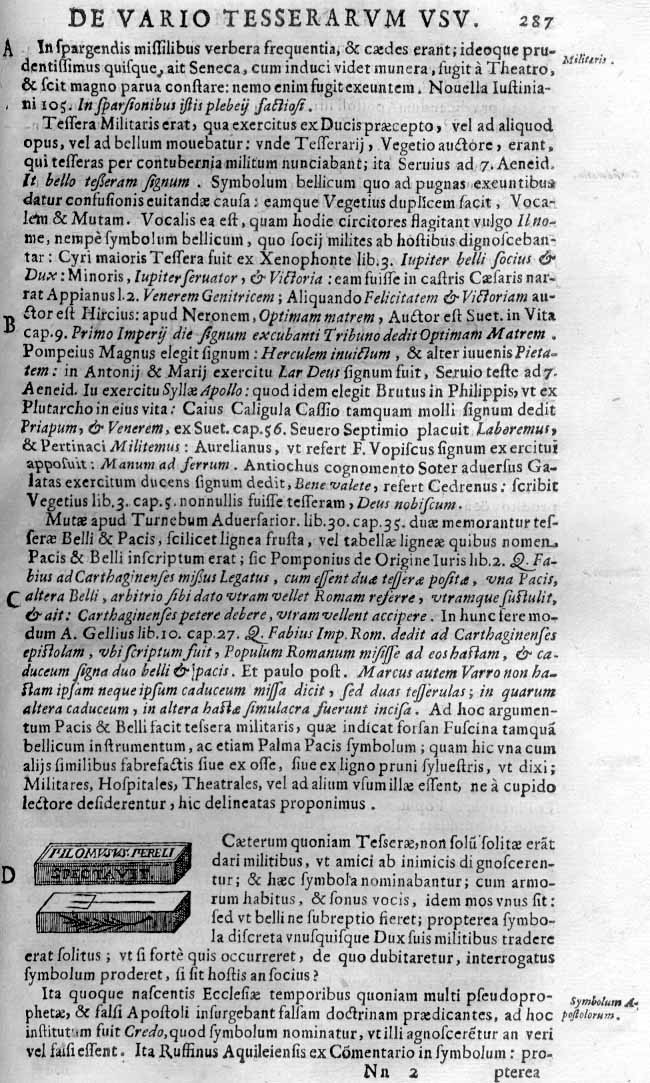 DE VARIO TESSERARVM VSV. 287
A In ſpargendis miſſilibus verbera frequentia, & cædes erant; ideoque pru-
Militaris.
dentiſſimus quiſque, ait Seneca, cum induci videt munera, fugit à Theatro,
& ſcit magno parua conſtare: nemo enim fugit exeuntem. Nouella Iuſtinia-
ni 105. In ſparſionibus iſtis plebeij factioſi.
Teſſera Militaris erat, qua exercitus ex Ducis præcepto, vel ad aliquod
opus, vel ad bellum mouebatur: vnde Teſſerarij, Vegetio auctore, erant,
qui teſſeras per contubernia militum nunciabant; ita Seruius ad 7. Aeneid.
It bello teſſeram ſignum. Symbolum bellicum quo ad pugnas exeuntibus
datur confuſionis euitandæ cauſa: eamque Vegetius duplicem facit, Voca-
lem & Mutam. Vocalis ea eſt, quam hodie circitores flagitant vulgo Il no-
me, nempè ſymbolum bellicum, quo ſocij milites ab hoſtibus dignoſceban-
tar: Cyri maioris Teſſera fuit ex Xenophonte lib.3. Iupiter belli ſocius &
Dux: Minoris, Iupiter ſeruator, & Victoria: eam fuiſſe in caſtris Cæſaris nar-
rat Appianus l.2. Venerem Genitricem; Aliquando Felicitatem & Victoriam au-
ctor eſt Hircius: apud Neronem, Optimam matrem, Auctor eſt Suet. in Vita
B cap.9. Primo Imperij die ſignum excubanti Tribuno dedit Optimam Matrem.
Pompeius Magnus elegit ſignum: Herculem inuictum, & alter iuuenis Pieta-
tem: in Antonij & Marij exercitu Lar Deus ſignum fuit, Seruio teſte ad 7.
Aeneid. Iu exercitu Syllæ Apollo: quod idem elegit Brutus in Philippis, vt ex
Plutarcho in eius vita: Caius Caligula Caſſio tamquam molli ſignum dedit
Priapum, & Venerem, ex Suet. cap.56. Seuero Septimio placuit Laboremus,
& Pertinaci Militemus: Aurelianus, vt refert F. Vopiſcus ſignum exercitui
appoſuit: Manum ad ferrum. Antiochus cognomento Soter aduerſus Ga-
latas exercitum ducens ſignum dedit, Bene valete, refert Cedrenus: ſcribit
Vegetius lib.3. cap.5. nonnullis fuiſſe teſſeram, Deus nobiſcum.
Mutæ apud Turnebum Aduerſarior. lib.30. cap.35. duæ memorantur teſ-
ſeræ Belli & Pacis, ſcilicet lignea fruſta, vel tabellæ ligneæ quibus nomen
Pacis & Belli inſcriptum erat; ſic Pomponius de Origine Iuris lib.2. Q. Fa-
bius ad Carthaginenſes miſſus Legatus, cum eſſent duæ teſſeræ poſitæ, vna Pacis,
C altera Belli, arbitrio ſibi dato vtram vellet Romam referre, vtramque ſuſtulit,
& ait: Carthaginenſes petere debere, vtram vellent accipere. In hunc fere mo-
dum A. Gellius lib.10. cap.27. Q. Fabius Imp. Rom. dedit ad Carthaginenſes
epiſtolam, vbi ſcriptum fuit, Populum Romanum miſiſſe ad eos haſtam, & ca-
duceum ſigna duo belli & pacis. Et paulo poſt. Marcus autem Varro non ha-
ſtam ipſam neque ipſum caduceum miſſa dicit, ſed duas teſſerulas; in quarum
altera caduceum, in altera haſtæ ſimulacra fuerunt inciſa. Ad hoc argumen-
tum Pacis & Belli facit teſsera militaris, quæ indicat forſan Fuſcina tamquã
bellicum inſtrumentum, ac etiam Palma Pacis ſymbolum; quam hic vna cum
alijs ſimilibus fabrefactis ſiue ex oſſe, ſiue ex ligno pruni ſylueſtris, vt dixi;
Militares, Hoſpitales, Theatrales, vel ad alium vſum illæ eſſent, ne à cupido
lectore deſiderentur, hic delineatas proponimus.
PILOMVSVS. PERELI
SPECTAVIT.
D
Cæterum quoniam Teſſeræ, non ſolũ ſolitæ erãt
dari militibus, vt amici ab inimicis dignoſceren-
tur; & hæc ſymbola nominabantur; cum armo-
rum habitus, & ſonus vocis, idem mos vnus ſit:
ſed vt belli ne ſubreptio fieret; propterea ſymbo-
la diſcreta vnuſquiſque Dux ſuis militibus tradere
erat ſolitus; vt ſi fortè quis occurreret, de quo dubitaretur, interrogatus
ſymbolum proderet, ſi ſit hoſtis an ſocius?
Ita quoque naſcentis Eccleſiæ temporibus quoniam multi pſeudopro-
Symbolum A-
phetæ, & falſi Apoſtoli inſurgebant falſam doctrinam prædicantes, ad hoc
poſtolorum.
inſtitutum fuit Credo, quod ſymbolum nominatur, vt illi agnoſcerẽtur an veri
vel falſi eſſent. Ita Ruffinus Aquileienſis ex Cõmentario in ſymbolum: pro-
Nn 2 pterea